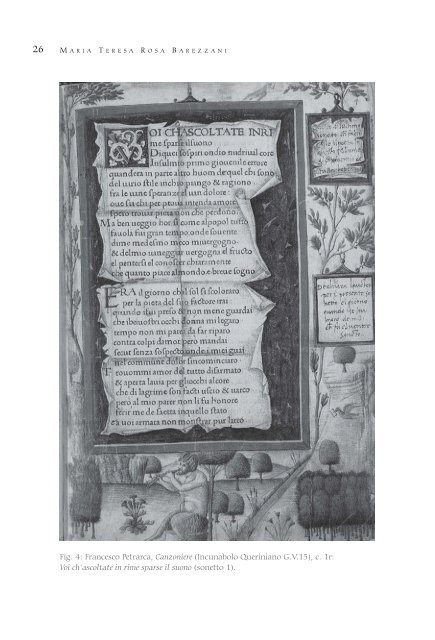 26 MARIA TERESA ROSA BAREZZANI
OI CHASCOLTATE INRI
me sparse ilsuono
Di quei sospiri ondio nudriual core
Insulmio primo giouenile errore
quandera in parte altro huom de quel chi sono
del uario stile inchio piango & ragiono
fra le uane speranze el uan dolore
oue sia chi per proua intenda amore
spero trouar pieta non che perdono.
Ma ben ueggio hor si come alpopol tutto
fauola fui gran tempo: onde souente
di me medesmo meco miuergogno
& delmio uaneggiar uergogna el fructo
el pentersi el conoscer chiaramente
che quanto piace almondo e breue sogno
ERA il giorno chal sol si scoloraro
per la pieta del suo factore irai
quando i fui preso & non mene guardai
che ibeuostri occhi donna mi legaro
tempo non mi parea da far riparo
contra colpi damor pero mandai
secur senza sospecto onde i miei guai
nel commune dolor
Trouommi amor del tutto disarmato
& aperta lauia per gliocchi al core
che di lagrime son facti uscio & uarco
pero al mio parte non li fu honore
ferir me de saetta inquello stato
a uoi armata non monstrar pur larco
Fig. 4: Francesco Petrarca, Canzoniere (Incunabolo Queriniano G.V.15), c. 1r:
Voi ch'ascoltate in rime sparse il suono (sonetto 1).